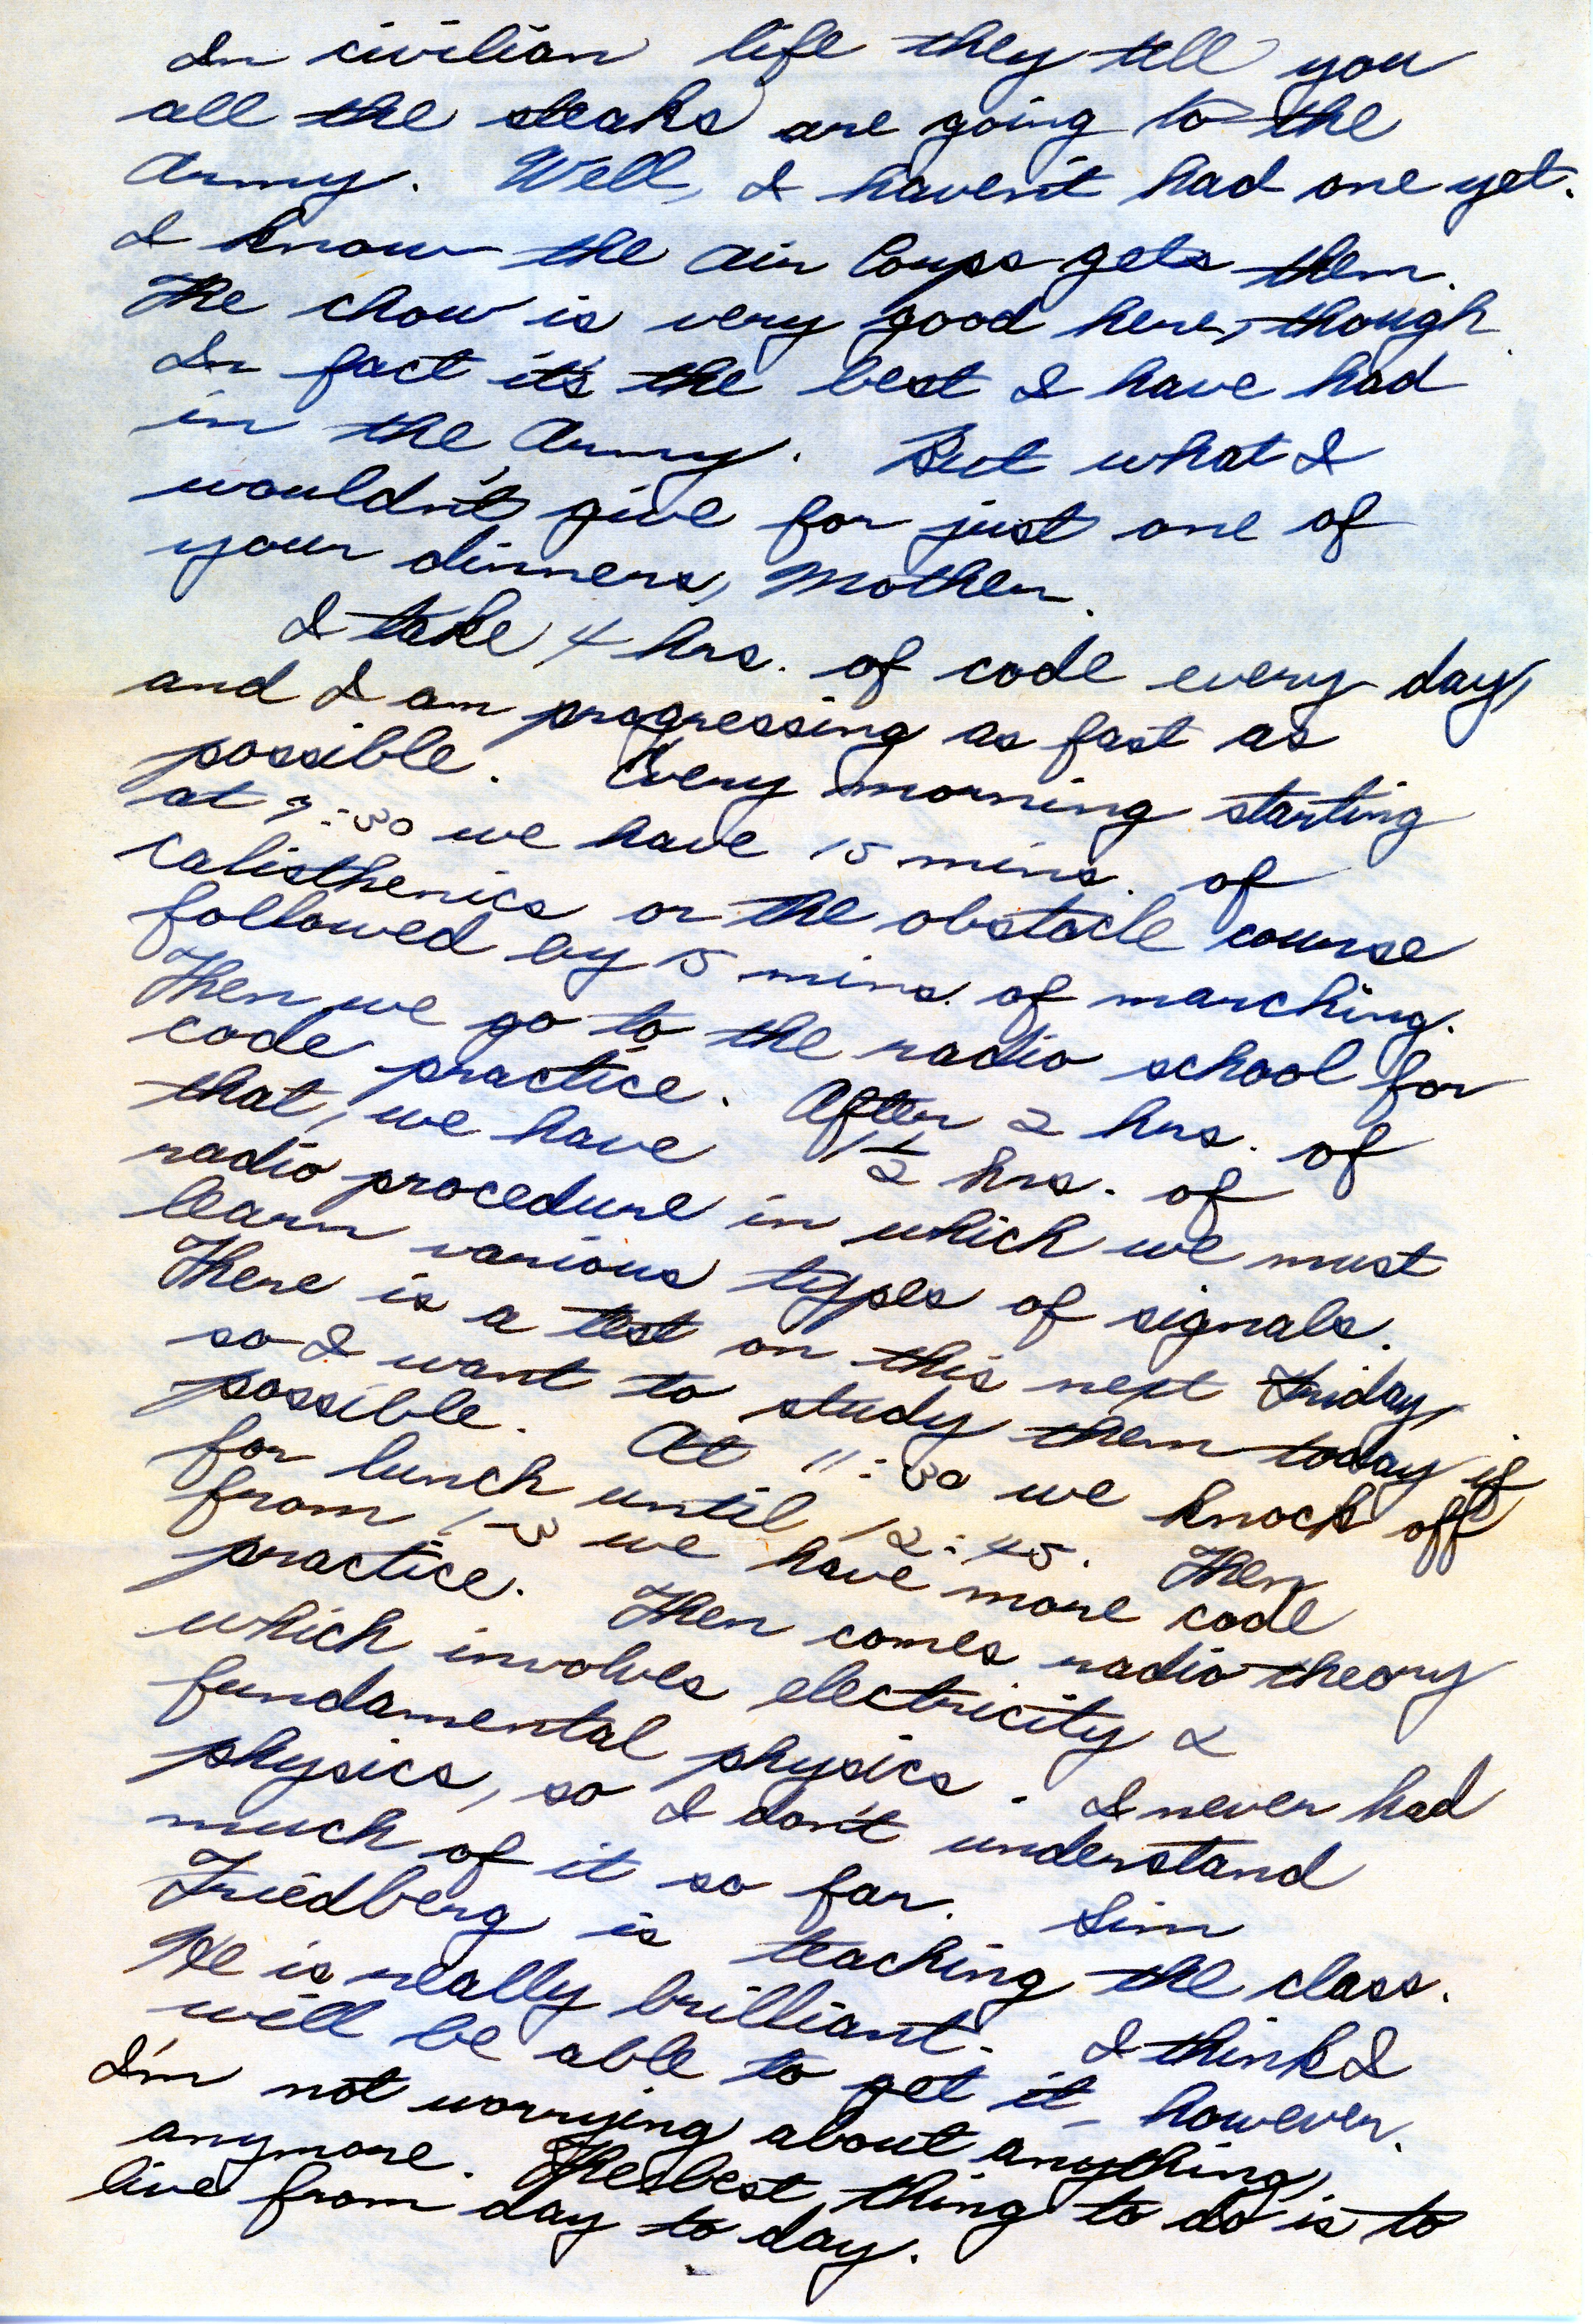 In civilian life they tell you
all the steaks are going to the
Army. Well, I haven't had one yet.
I know the Air Corps gets them.
The chow is very good here, though.
In fact it's the best I have had
in the Army. But what I
wouldn't give for just one of
your dinners, Mother.
I take 4 hrs. of code every day,
and I am progressing as fast as
possible. Every morning starting
at 7:30 we have 15 mins. of
calisthenics or the obstacle course
followed by 15 mins. of marching.
Then we go to the radio school for
code practice. After 2 hrs. of
that, we have 1 1/2 hrs. of
radio procedure in which we must
learn various types of signals.
There is a test on this next Friday,
so I want to study them today if
possible. At 11:30 we knock off
for lunch until 12:45. Then
from 1-3 we have more code
practice. Then comes radio theory
which involves electricity &
fundamental physics. I never had
physics, so I don't understand
much of it so far. Sim
Friedberg is teaching the class.
He is really brilliant. I think I
will be able to get it, however.
I'm not worrying about anything
anymore. The best thing to do is to
live from day to day.